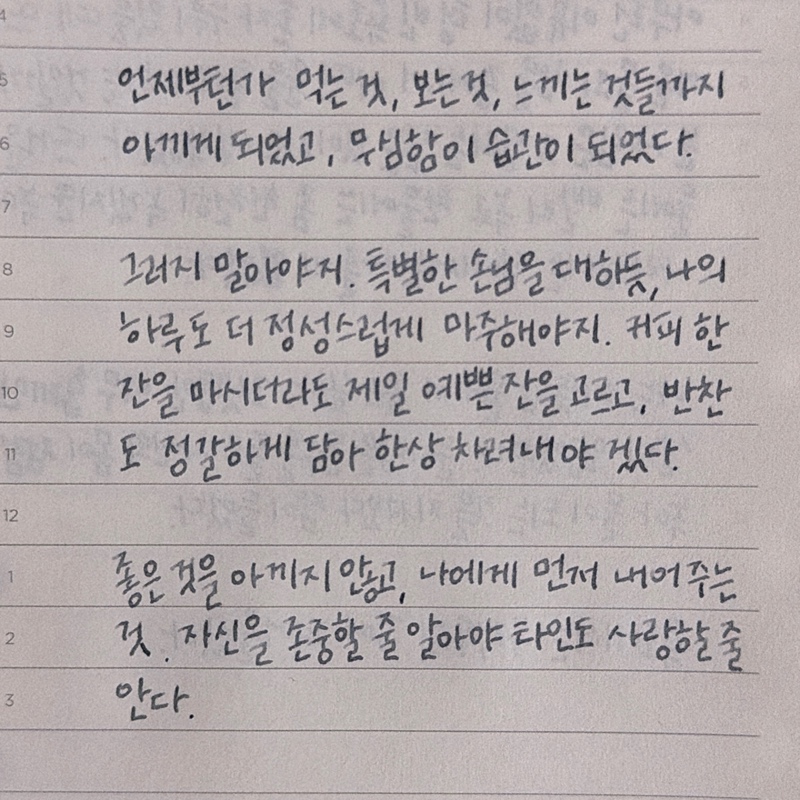 4
5 언제부턴가 먹는 것, 보는 것, 느끼는 것들까지
6 아끼게 되었고, 무심함이 습관이 되었다.
7
8 그러지 말아야지. 특별한 손님을 대하듯, 나의
9 하루도 더 정성스럽게 마주해야지. 커피 한
10 잔을 마시더라도 제일 예쁜 잔을 고르고, 반찬
11 도 정갈하게 담아 한상 차려내야 겠다.
12
1 좋은 것을 아끼지 않고, 나에게 먼저 내어주는
2 것. 자신을 존중할 줄 알아야 타인도 사랑할 줄
3 안다.